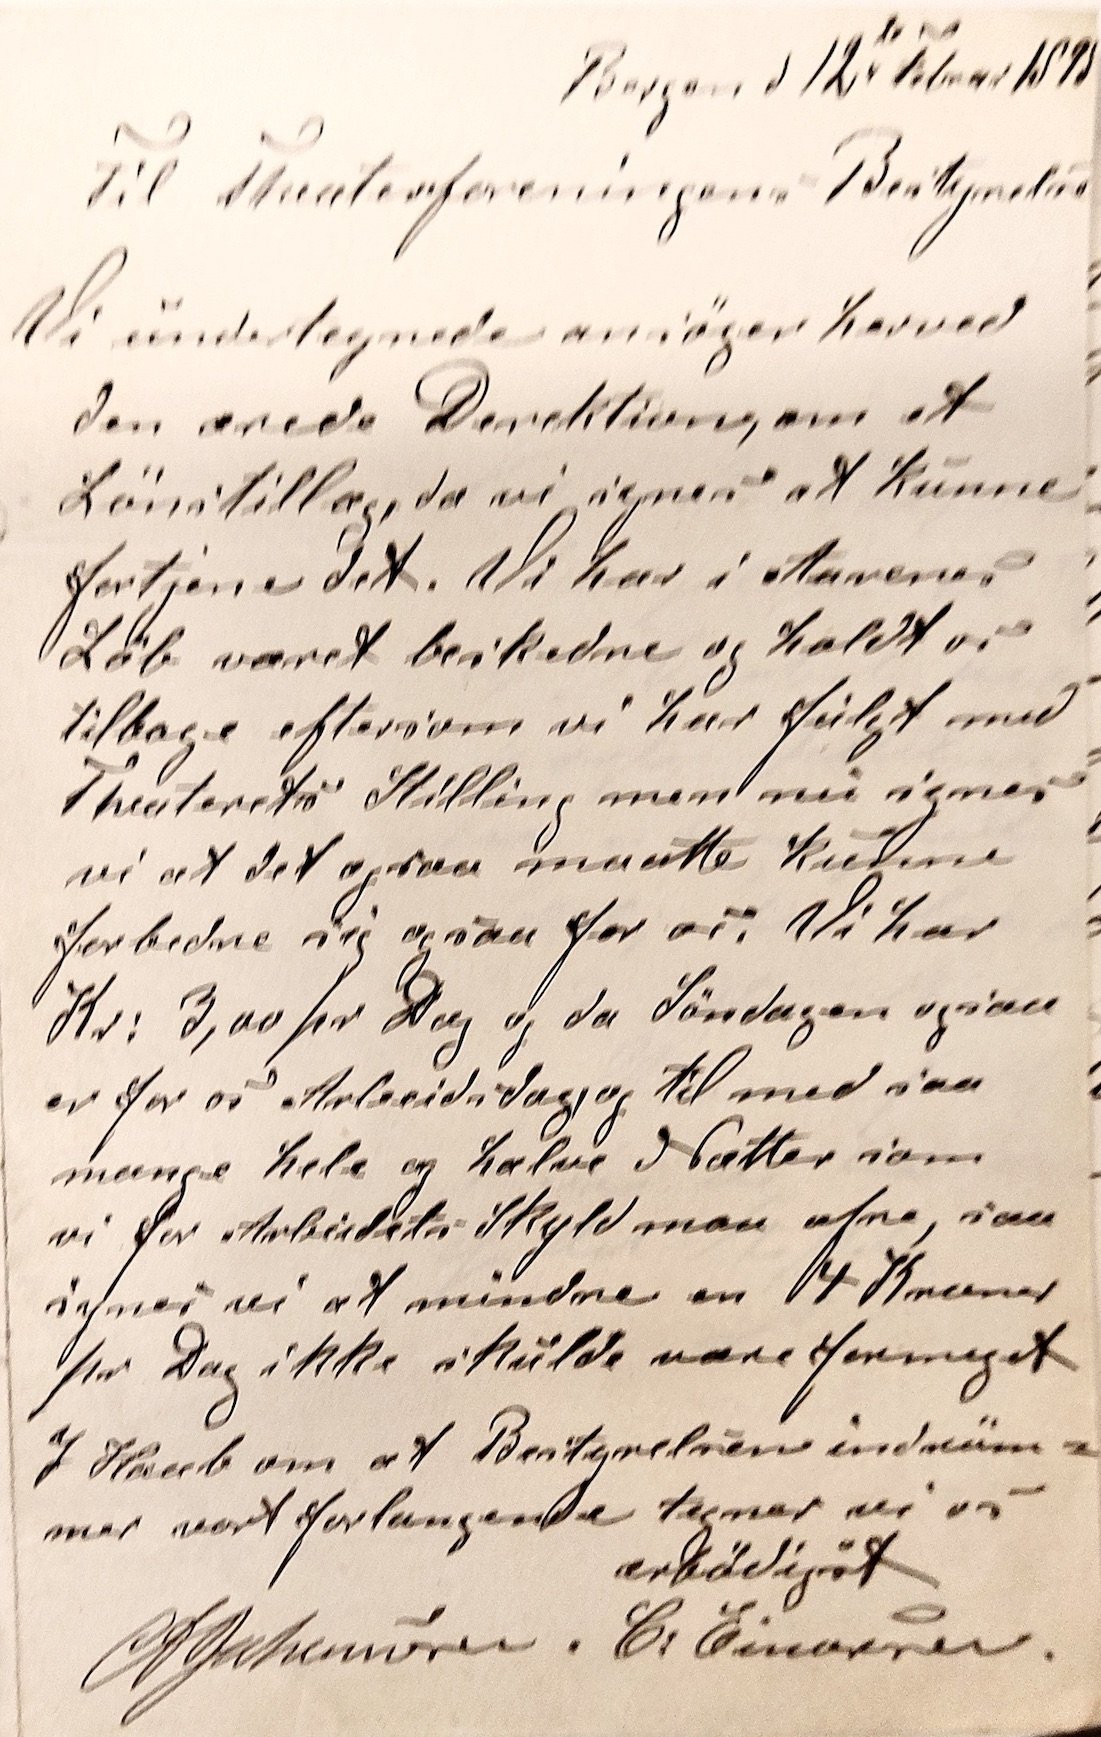 Bergen d 12te Februar 1895
Til Theaterforeningens Bestyrelse
Vi undertegnede ansöger herved
den ærede Derektion, om et
Lönstillæg, da vi synes at kunne
fortjene det. Vi har i Aarenes
Löb været beskedne og holdt os
tilbage eftersom vi har fulgt med
Theaterets Stilling men nu synes
vi at det ogsaa maatte kunne
forbedre sig ogsaa for os. Vi har
Kr: 3,00 pr Dag og da Söndagen ogsaa
er for os Arbeidsdag, og til med saa
mange hele og halve Nætter som
vi for Arbeidets Skyld maa ofre, saa
synes vi at mindre en 4 Kroner
pr Dag ikke skulde være formeget
I Haab om at Bestyrelsen indröm=
mer vort forlangende tegner vi os
ærbödigst
C: Einarsen.